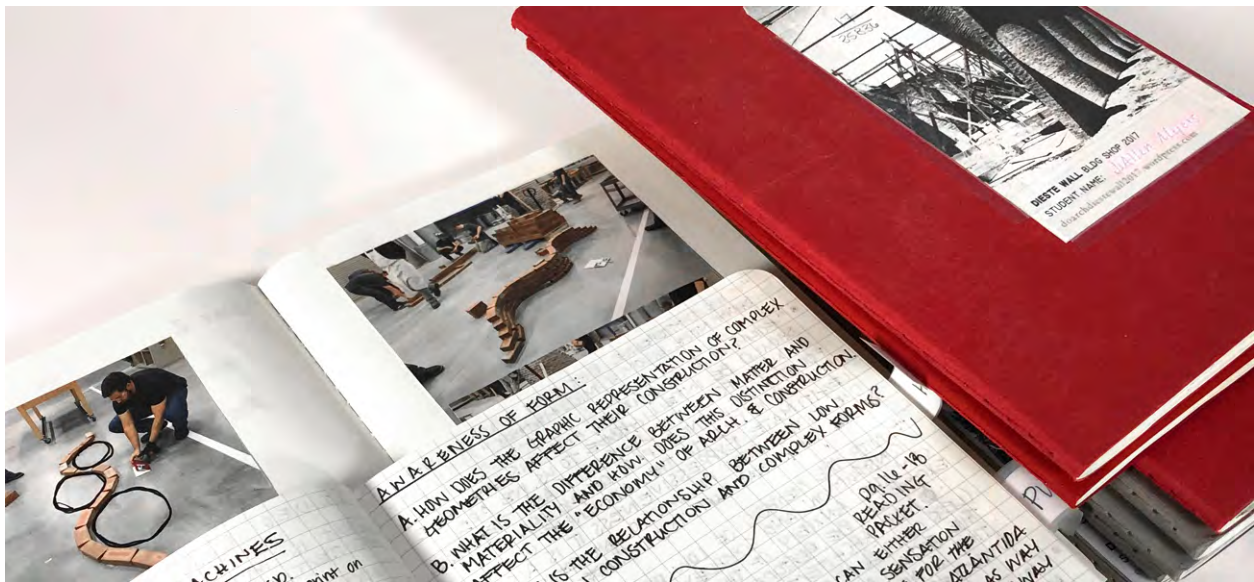 DIESTE WALL BLDG SHOP 2017
STUDENT NAME:
doarchdiestewall2017.wordpress.com
AWARENESS OF FORM:
A. HOW DOES THE GRAPHIC REPRESENTATION OF COMPLEX
GEOMETRIES AFFECT THEIR CONSTRUCTION?
B. WHAT IS THE DIFFERENCE BETWEEN MATTER AND
MATERIALITY AND HOW DOES THIS DISTINCTION
AFFECT THE "ECONOMY" OF ARCH. & CONSTRUCTION.
IS THE RELATIONSHIP BETWEEN LOW
CONSTRUCTION AND COMPLEX FORMS?
READING
PACKET.
CAN EITHER
SENSATION
FOR THE
ATLANTIDA
AS WAY
WAY
CHINES
print on
PV